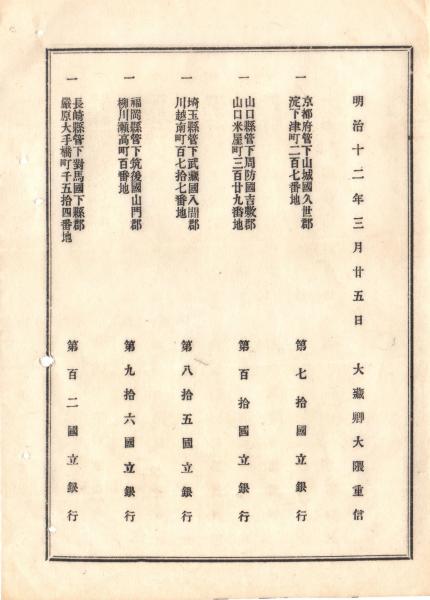 明治十二年三月廿五日 大藏卿大隈重信
一 京都府管下山城國久世郡
淀下津町二百七番地 第七拾國立銀行
一 山口縣管下周防國吉敷郡
山口米屋町三百廿九番地 第百拾國立銀行
一 埼玉縣管下武藏國入間郡
川越南町百七拾七番地 第八拾五國立銀行
一 福岡縣管下筑後國山門郡
柳川瀬高町百番地 第九拾六國立銀行
一 長崎縣管下對馬國下縣郡
嚴原大手橋町千五拾四番地 第百二國立銀行